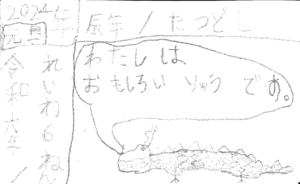 2024年
元旦
辰年／たつどし
れいわ6ねん
令和六年
わたしは
おもしろいりゅうです。